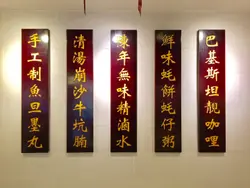 手工制魚旦墨丸
清湯崩沙牛坑腩
陳年無味精滷水
鮮味蚝餅蚝仔粥
巴基斯坦靚咖哩